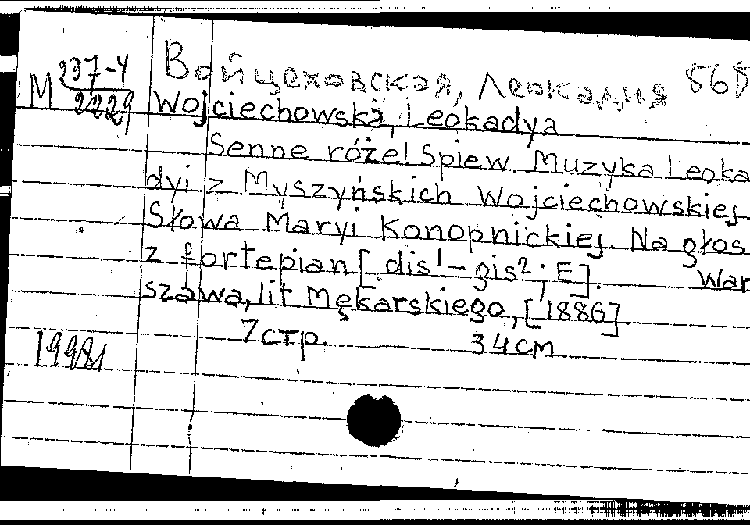 М 237-4
2229
Войцеховская, Леокадия 568
Wojciechowska, Leokadya
Senne róże! Spiew. Muzyka Leoka
dyi z Myszyńskich Wojciechowskiej.
Słowa Maryi Konopnickiej. Na głos
z fortepian [dis¹ – gis²; E]. War
szawa, lit Mękarskiego, [1886]
7 стр. 34 см